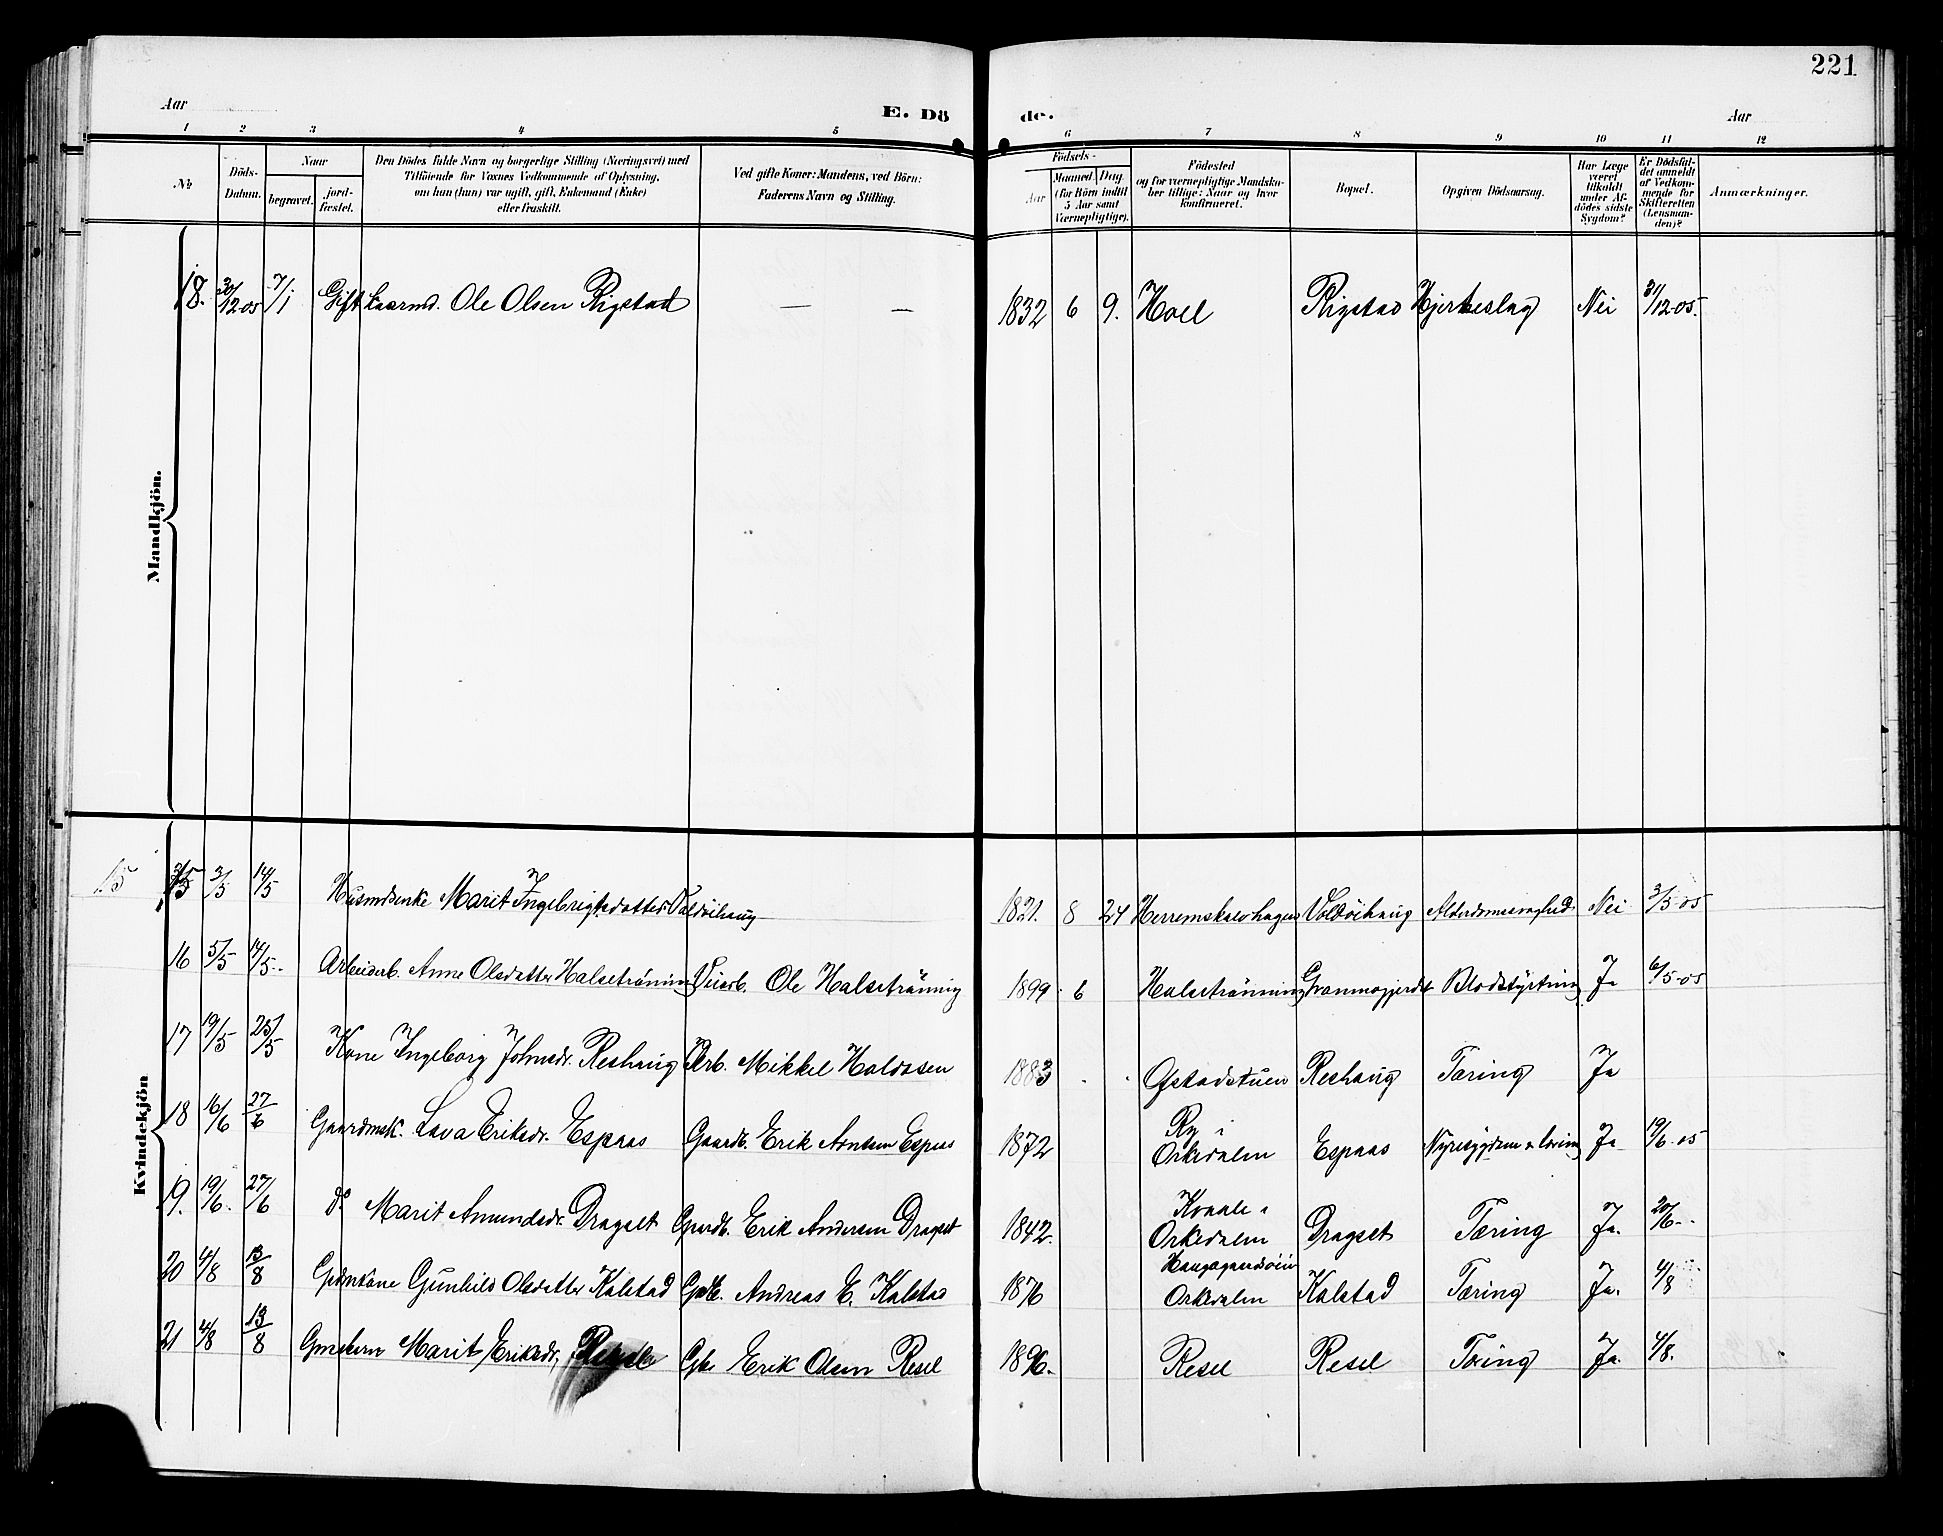 221
Aar
E. Dö
de.
Aar
1 2 3 4 5 6 7 8 9 10 11 12
No
Döds-Datum.
Naar
begravet.
jord-fæstet.
Den Dödes fulde Navn og borgerlige Stilling (Næringsvei) med
Tilföiende for Voxnes Vedkommende af Oplysning,
om hun (hun) var ugift, gift, Enkemand (Enke)
eller fraskilt.
Ved gifte Koner: Mandens, ved Börn:
Faderens Navn og Stilling.
Födsels-
Aar
Maaned. Dag.
(for Börn indtil
5 Aar samt
Værnepligtige).
Födested
og for værnepligtige Mandska-
ber tillige: Naar og hvor
konfirmeret.
Bopæl.
Opgiven Dödsaarsag.
Har Læge
været
tilkaldt
under Af-
dödes sidste
Sygdom?
Er Dödsfal-
det anmeldt
af Vedkom-
mende for
Skifteretten
(Lensman-
den)?
Anmærkninger.
Mandkjön.
18. 30/12-05 7/1 Gift Ole Olsen Rigstad — — 1832 6 9. Hoel Rigstad Hjerteslag Nei 31/12-05.
Kvindekjön
15 15 2/5 14/5 Husmdsenke Marit Ingebrigtsdatter Voldöihaug 1821. 8 24 Voldöihaug Nei 3/5-05
16 5/5 14/5. Arbeiderb. Anne Olsdatter Halsetrönning Ole Halsetrönning 1899 6 Halsetrönning Blodstyrtning Ja 6/5-05
17 19/5 25/5 Kone Ingeborg Johnsdr. Reshaug Arb. Mikkel Haldosen 1883 Ofstadstuen Reshaug Tæring Ja
18 16/6 27/6 Gaardmsk. Lava Eriksdr. Espaas Gaardb. Erik Arntsen Espaas 1872 Ry i
Orkedalen Espaas Ja 19/6-05
19. 19/6. 27/6 do Marit Amundsdr. Dragset Gaardb. Erik Andersen Dragset 1842. Kvaale i
Orkedalen Dragset Tæring Ja. 20/6-
20 4/8 13/8 Gdmkone Gunhild Olsdatter Kalstad Gdb. Andreas E. Kalstad 1876 Orkedalen Kalstad Tæring Ja. 4/8
21 4/8 13/8 Marit Eriksdr, Resel Gbr Erik Olsen Resel 1896. Resel Resel Tæring Ja. 4/8.